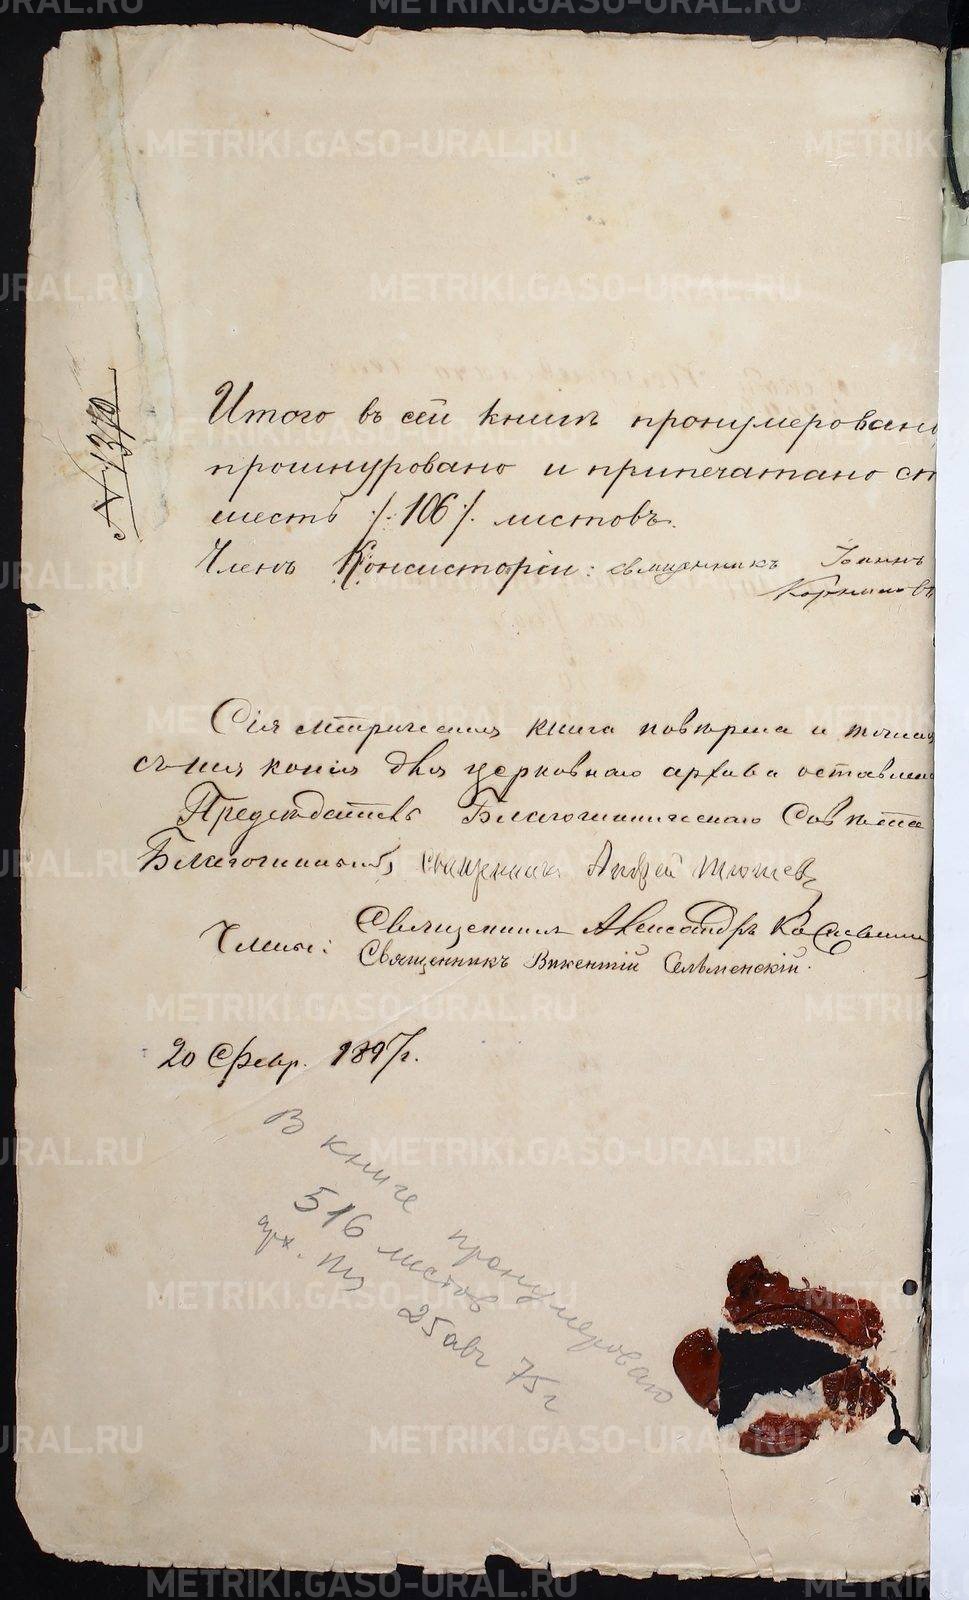 № 1370
Итого въ сей книгѣ пронумеровано
прошнуровано и припечатано ст
шесть /:106:/ листовъ.
Членъ Консисторіи: священникъ Іоаннъ
Корниловъ
Сія метрическая книга повѣрена и точная
съ нея копія для церковнаго архива оставлена
Предсѣдатель Благочинническаго Совѣта
Благочинный, Священникъ Андрей
Члены: Священникъ Александръ
Священникъ Викентій Сельменскій.
20 Февр. 1897г.
В книге пронумеровано
516 листов
арх. 25 авг 75 г
METRIKI.GASO-URAL.RU